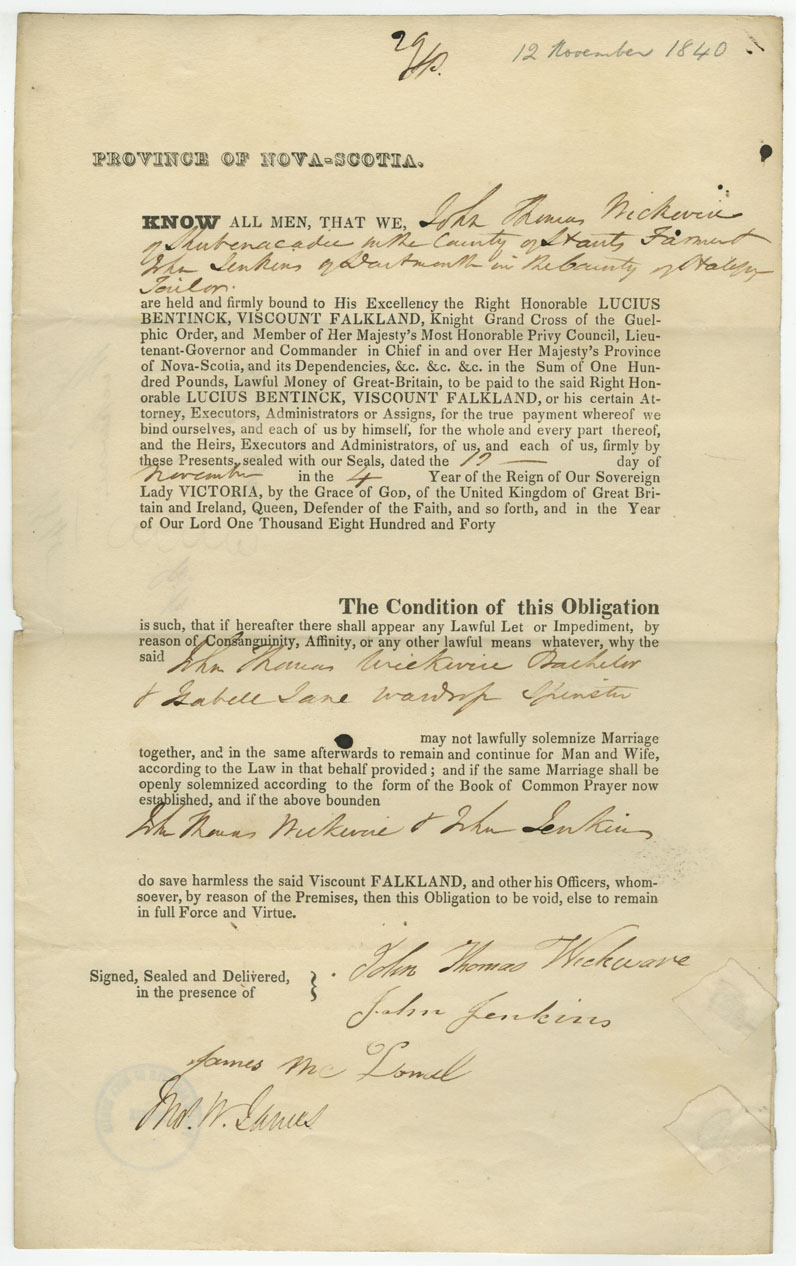 12 November 1840
PROVINCE OF NOVA-SCOTIA.
KNOW ALL MEN, THAT WE, John Thomas Wickwire
of Shubenacadie in the County of Hants Farmer &
John Jenkins of Dartmouth in the County of Halifax
Tailor.
are held and firmly bound to His Excellency the Right Honorable LUCIUS
BENTINCK, VISCOUNT FALKLAND, Knight Grand Cross of the Guel-
phic Order, and Member of Her Majesty's Most Honorable Privy Council, Lieu-
tenant-Governor and Commander in Chief in and over Her Majesty's Province
of Nova-Scotia, and its Dependencies, &c. &c. &c. in the Sum of One Hun-
dred Pounds, Lawful Money of Great-Britain, to be paid to the said Right Hon-
orable LUCIUS BENTINCK, VISCOUNT FALKLAND, or his certain At-
torney, Executors, Administrators or Assigns, for the true payment whereof we
bind ourselves, and each of us by himself, for the whole and every part thereof,
and the Heirs, Executors and Administrators, of us, and each of us, firmly by
these Presents, sealed with our Seals, dated the 12 — day of
November in the 4 Year of the Reign of Our Sovereign
Lady VICTORIA, by the Grace of GOD, of the United Kingdom of Great Bri-
tain and Ireland, Queen, Defender of the Faith, and so forth, and in the Year
of Our Lord One Thousand Eight Hundred and Forty
The Condition of this Obligation
is such, that if hereafter there shall appear any Lawful Let or Impediment, by
reason of Consanguinity, Affinity, or any other lawful means whatever, why the
said John Thomas Wickwire Bachelor
& Isabell Jane Wardrop Spinster
may not lawfully solemnize Marriage
together, and in the same afterwards to remain and continue for Man and Wife,
according to the Law in that behalf provided; and if the same Marriage shall be
openly solemnized according to the form of the Book of Common Prayer now
established, and if the above bounden
John Thomas Wickwire & John Jenkins
do save harmless the said Viscount FALKLAND, and other his Officers, whom-
soever, by reason of the Premises, then this Obligation to be void, else to remain
in full Force and Virtue.
Signed, Sealed and Delivered,
in the presence of
John Thomas Wickware
John Jenkins
James Mc
W. James